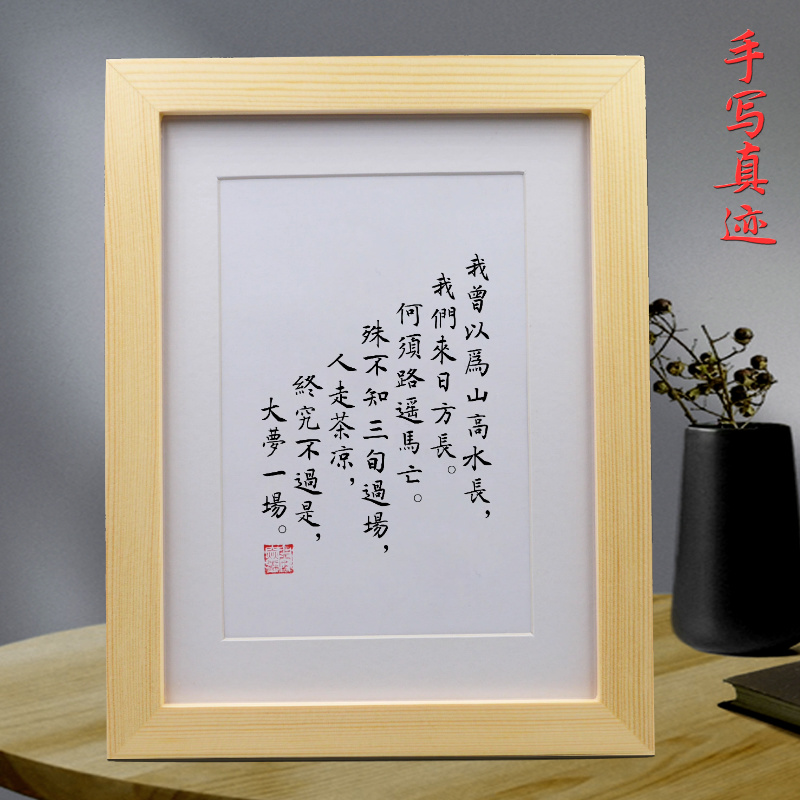 我曾以爲山高水長，
我們來日方長。
何須路遥馬亡。
殊不知三旬過場，
人走茶凉，
終究不過是，
大夢一場。
手写真迹